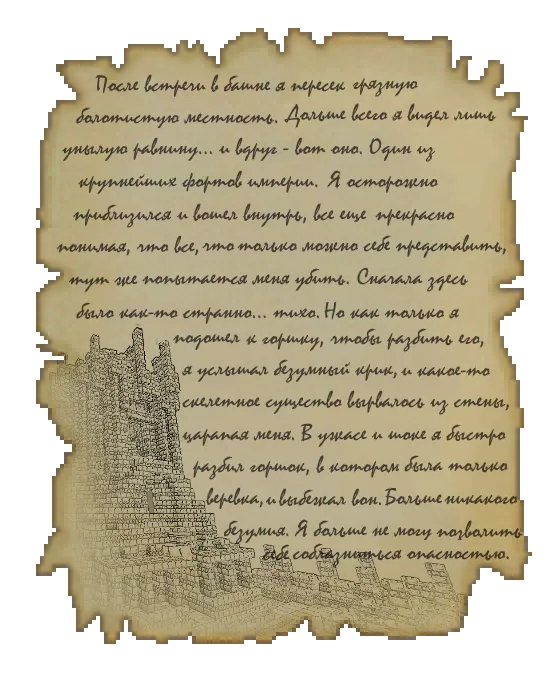 После встречи в башне я пересек грязную
болотистую местность. Дольше всего я видел лишь
унылую равнину... и вдруг - вот оно. Один из
крупнейших фортов империи. Я осторожно
приблизился и вошел внутрь, все еще прекрасно
понимая, что все, что только можно себе представить,
тут же попытается меня убить. Сначала здесь
было как-то странно... тихо. Но как только я
подошел к горшку, чтобы разбить его,
я услышал безумный крик, и какое-то
скелетное существо вырвалось из стены,
царапая меня. В ужасе и шоке я быстро
разбил горшок, в котором была только
веревка, и выбежал вон. Больше никакого
безумия. Я больше не могу позволить
себе соблазниться опасностью.